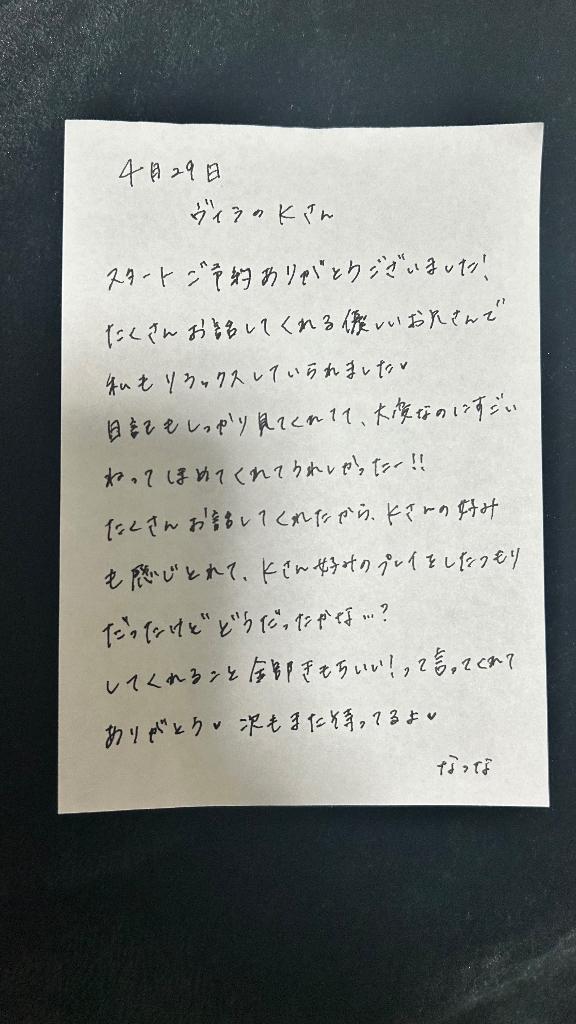 4月29日
ヴィラのKさん
スタートご予約ありがとうございました!
たくさんお話してくれる優しいお兄さんで
私もリラックスしていられました♥
日記もしっかり見てくれてて、大変なのにすごい
ねってほめてくれてうれしかったー!!
たくさんお話してくれたから、Kさんの好み
も感じとれて、Kさん好みのプレイをしたつもり
だったけどどうだったかな…?
してくれること全部きもちいい!って言ってくれて
ありがとう♥ 次もまた待ってるよ♥
なつな